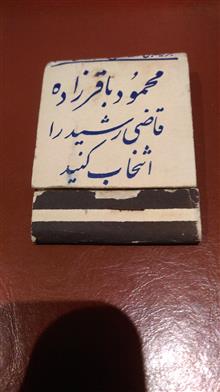 محمود باقرزاده
قاضی رشید را
انتخاب کنید